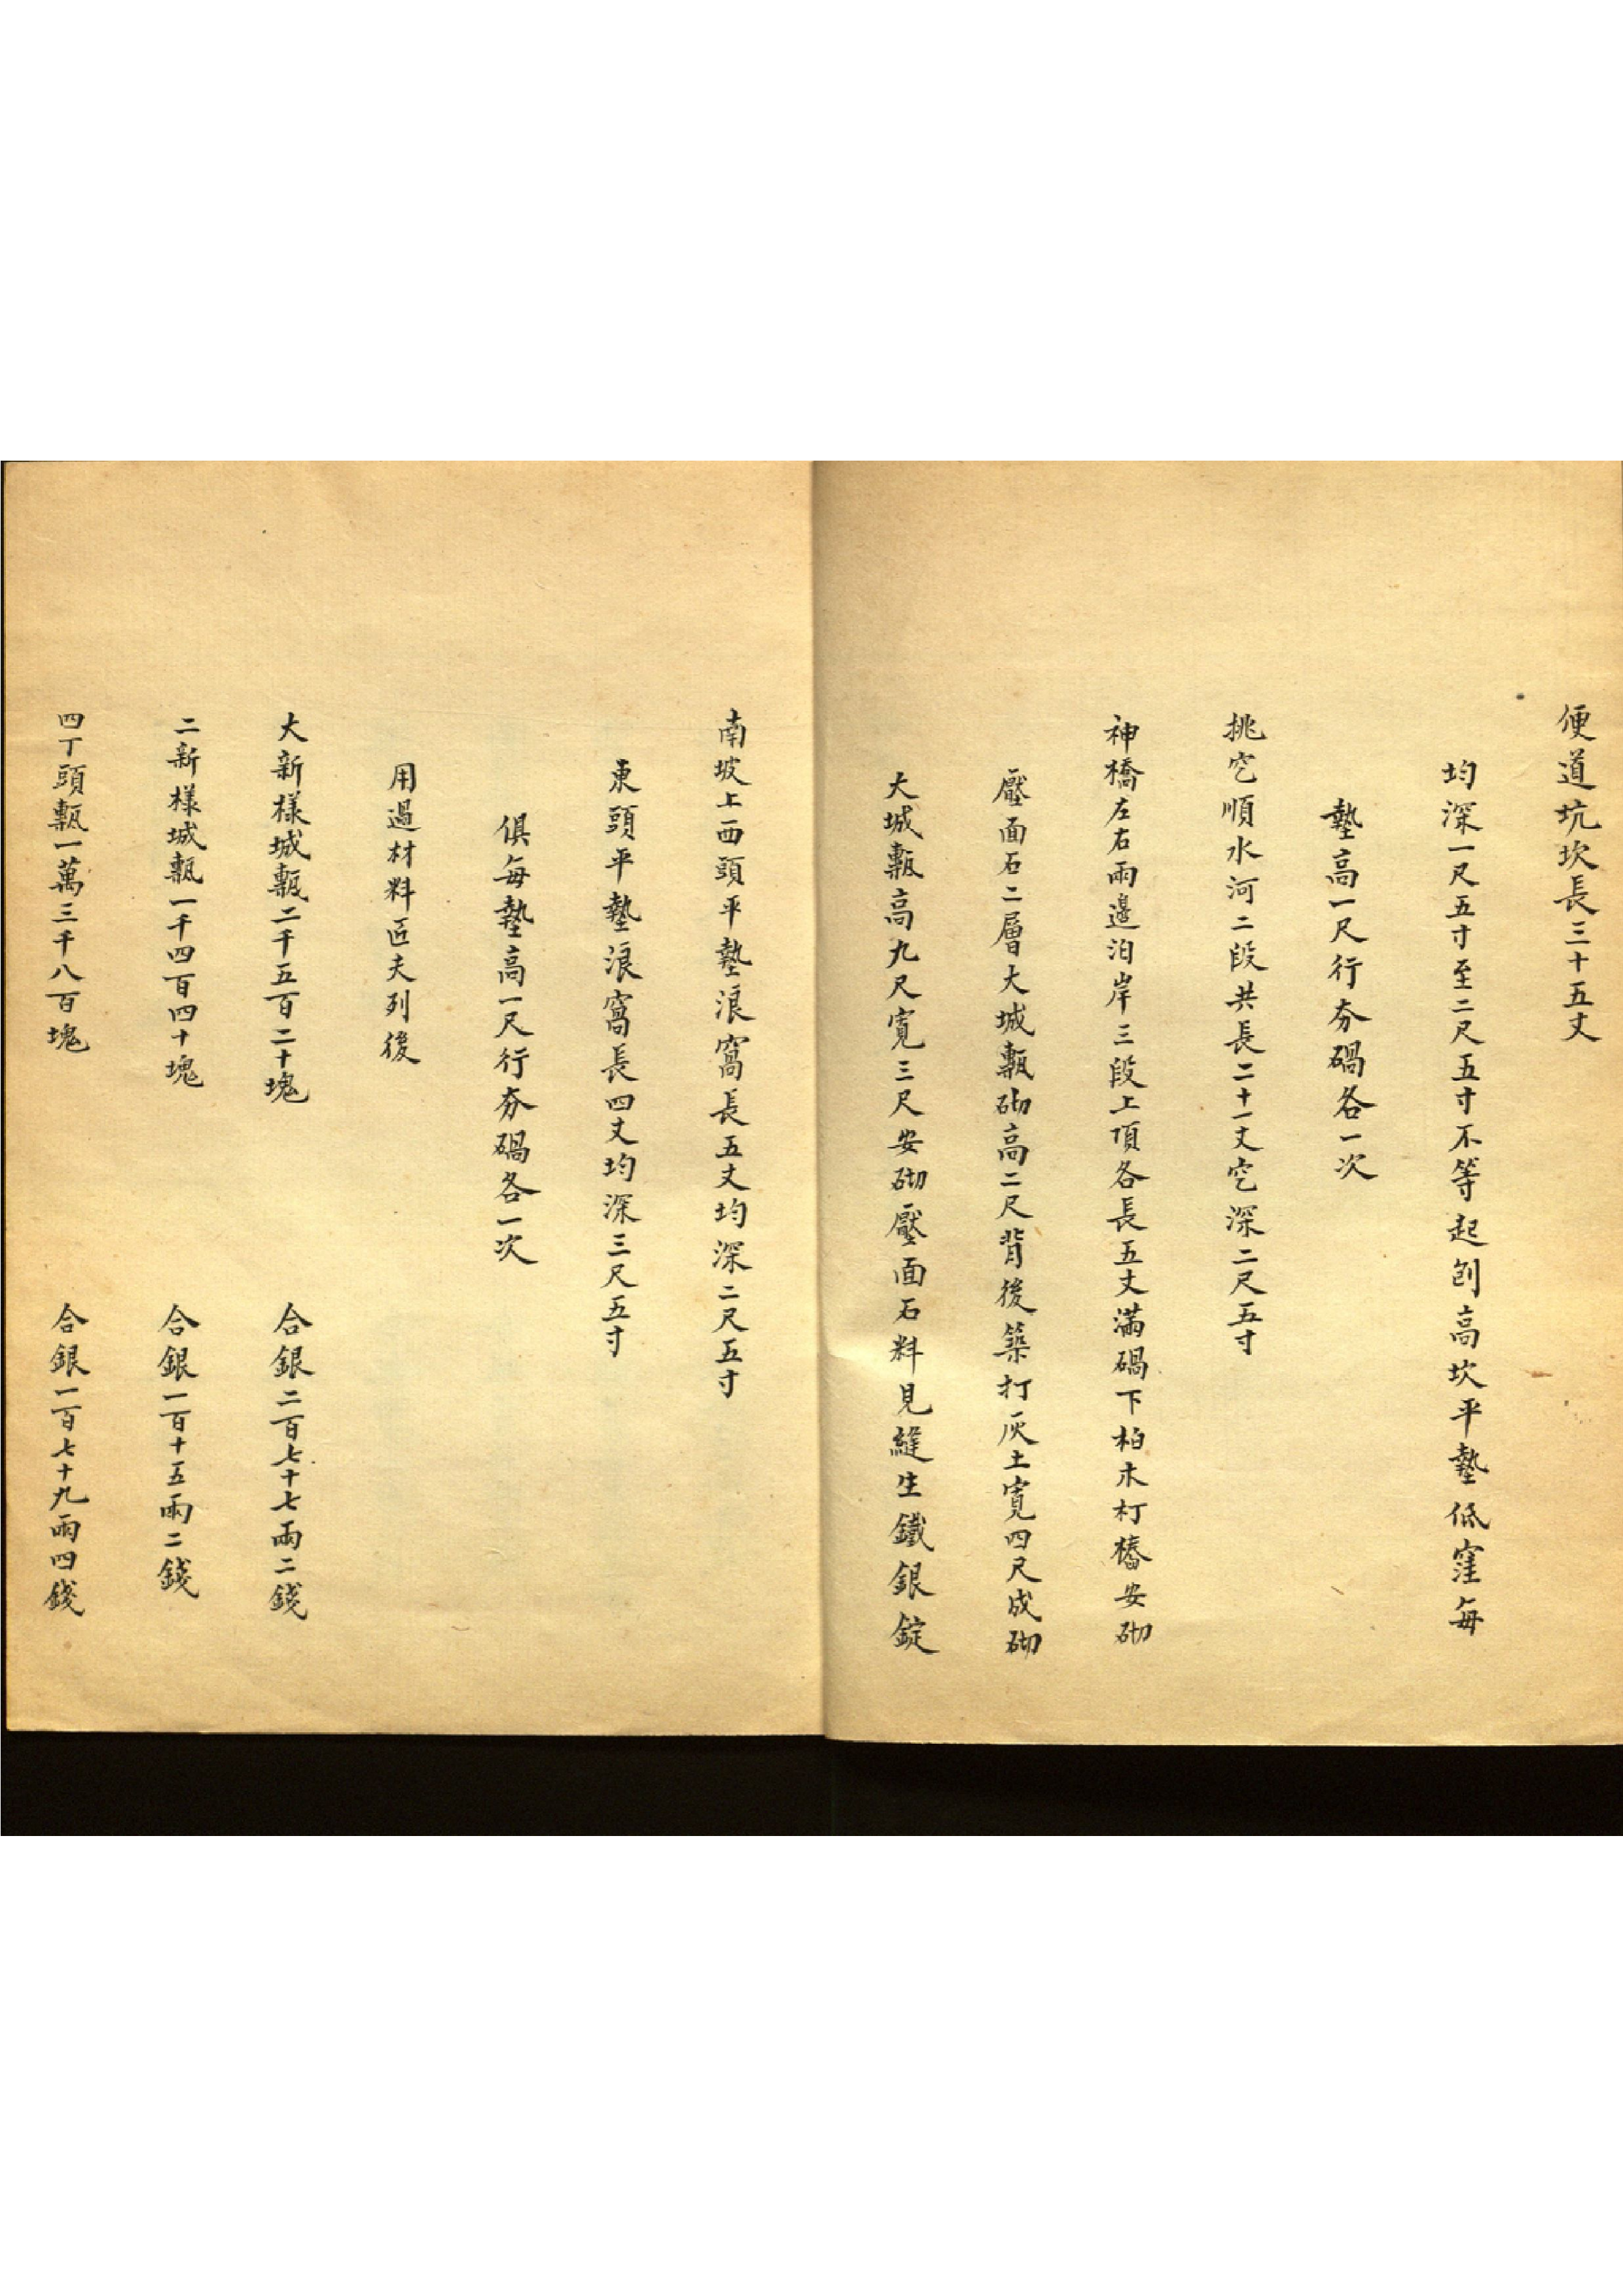 便道坑坎長三十五丈
均深一尺五寸至二尺五寸不等起刨高坎平墊低窪每
墊高一尺行夯硪各一次
挑穵順水河二段共長二十一丈穵深二尺五寸
神橋左右兩邊泊岸三段上頂各長五丈滿硪下柏木椿安砌
壓面石二層大城甎砌高二尺背後築打灰土寬四尺成砌
大城甎高九尺寬三尺安砌壓面石料見縫生鐵銀錠
南坡上西頭平墊浪窩長五丈均深二尺五寸
東頭平墊浪窩長四丈均深三尺五寸
俱每墊高一尺行夯硪各一次
用過材料匠夫列後
大新樣城甎二千五百二十塊 合銀二百七十七兩二錢
二新樣城甎一千四百四十塊 合銀一百十五兩二錢
四丁頭甎一萬三千八百塊 合銀一百七十九兩四錢